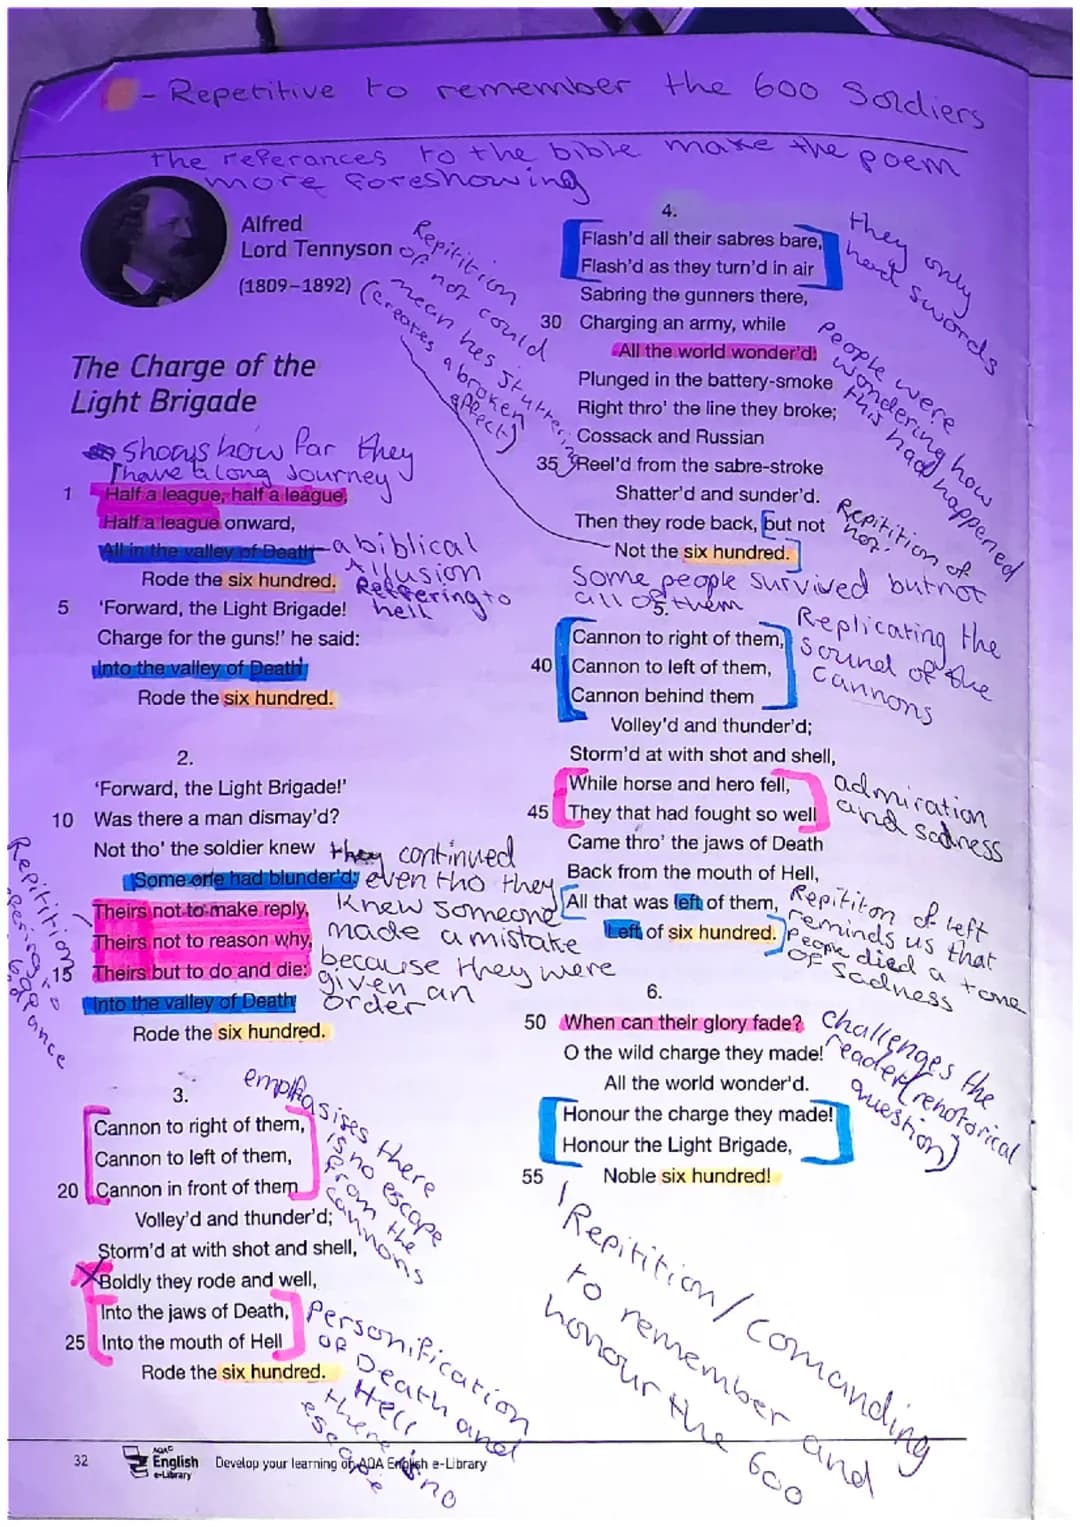 - Repetitive to remember the 600 Soldiers
the referances to the bible make the poem
more foreshowing
Alfred
Lord Tennyson
(1809–1892)
Repitition
of not could
mean hes stuttering
(creates a broken
affect)
The Charge of the
Light Brigade
Shows how far they
have a long Journey
1 'Half a league, half a league,
Half a league onward,
All in the valley of Death
Rode the six hundred.
a biblical
Allusion
Refering to
hell
5 'Forward, the Light Brigade!
Charge for the guns!' he said:
Into the valley of Death
Rode the six hundred.
2.
'Forward, the Light Brigade!'
10 Was there a man dismay'd?
Not tho' the soldier knew
Some one had blunder'd:
Theirs not to make reply,
Theirs not to reason why,
15 Theirs but to do and die:
Into the valley of Death
Rode the six hundred.
they continued
even tho they
knew someone
made a mistake
because they were
given an
order
Repitition
3.
Cannon to right of them,
Cannon to left of them,
20 Cannon in front of them
Volley'd and thunder'd;
Storm'd at with shot and shell,
Boldly they rode and well,
Into the jaws of Death,
25 Into the mouth of Hell
Rode the six hundred.
emphasises there
is no escape
from the
cannons
Personification
of Death and
Hell
there is no
escape
4.
Flash'd all their sabres bare,
Flash'd as they turn'd in air
Sabring the gunners there,
30 Charging an army, while
All the world wonder'd:
Plunged in the battery-smoke
Right thro' the line they broke;
Cossack and Russian
35 Reel'd from the sabre-stroke
Shatter'd and sunder'd.
Then they rode back, but not
Not the six hundred.
they only
had swords
people were
wondering how
this had happened
Repitition of
not.
Some people survived but not
all of them
5.
Cannon to right of them,
40 Cannon to left of them,
Cannon behind them
Volley'd and thunder'd;
Storm'd at with shot and shell,
While horse and hero fell,
45 They that had fought so well
Came thro' the jaws of Death
Back from the mouth of Hell,
All that was left of them,
Left of six hundred.
Replicating the
sound of the
cannons
admiration
and sadness
Repititon of left
reminds us that
people died a tone
of Sadness
6.
50 When can their glory fade?
O the wild charge they made!
All the world wonder'd.
Honour the charge they made!
Honour the Light Brigade,
55 Noble six hundred!
challenges the
reader (rehotorical
question)
Repitition/comanding
to remember and
honour the 600
32
AQA
English
e-Library
Develop your learning on AQA English e-Library